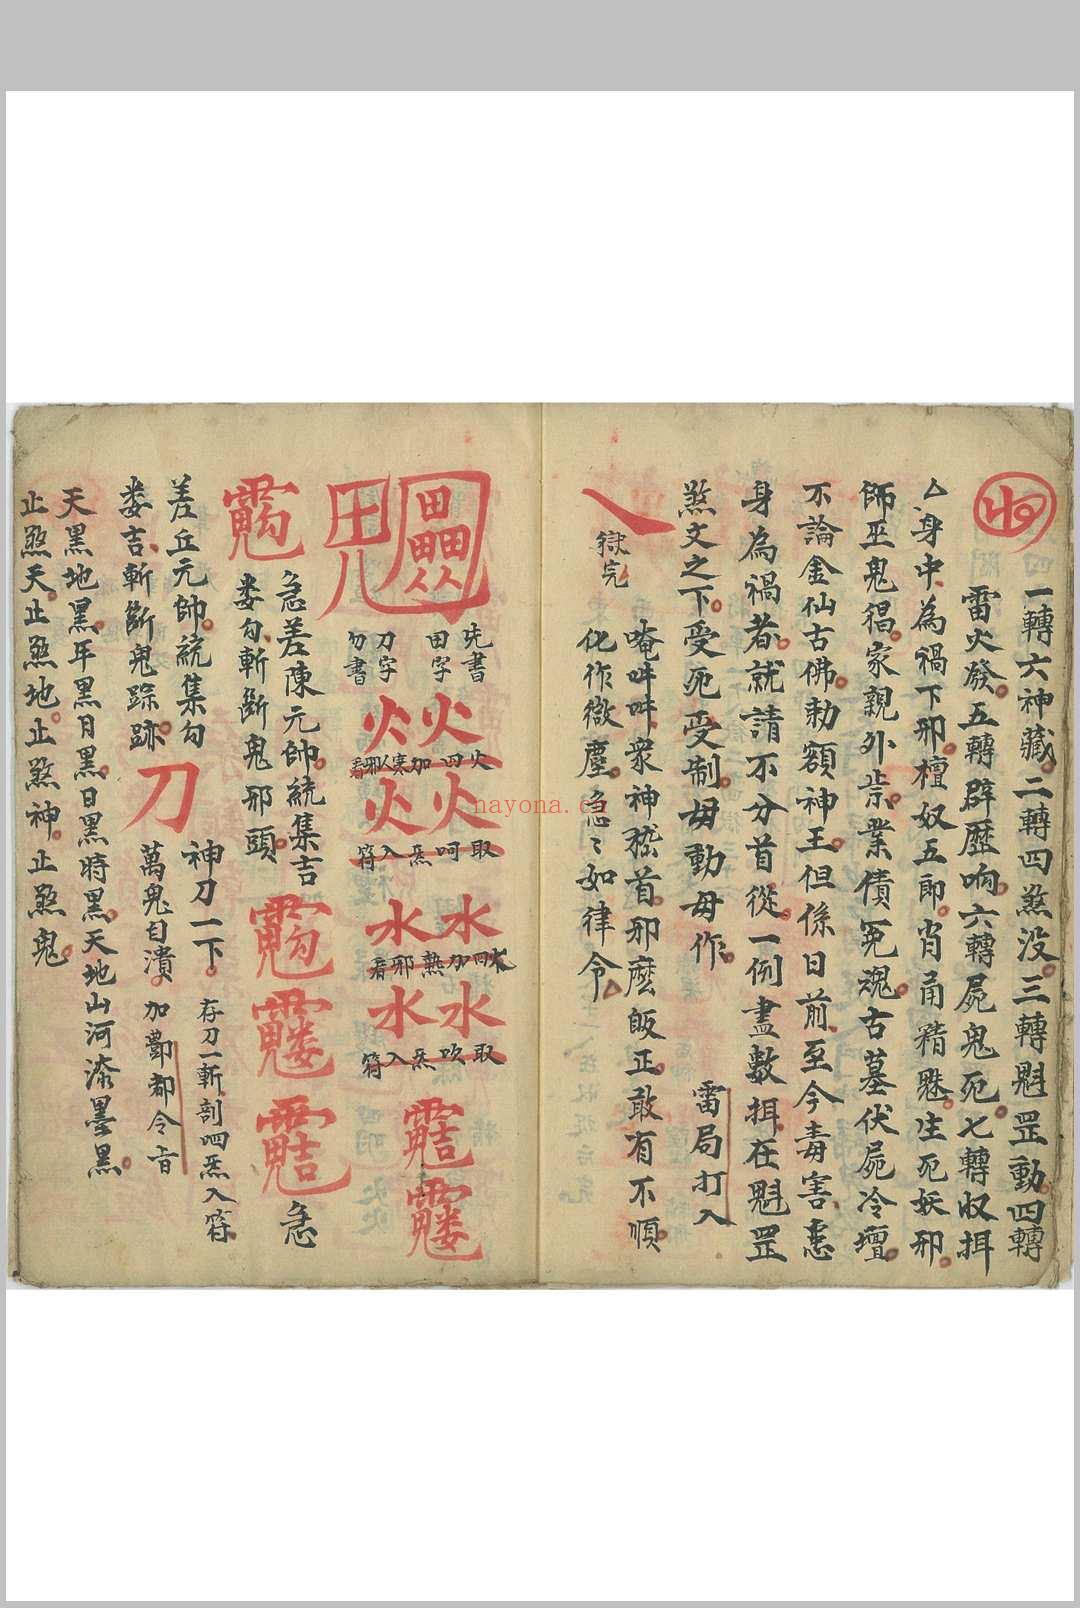 一轉六神藏二轉四煞没三轉魁罡動四轉
雷火發五轉辟歷响六轉屍鬼死七轉收捐
厶身中為禍下邪檀奴五郎肖甬精魅生死妖邪
師巫鬼猖家親外祟業債冤魂古墓伏屍冷壇
不論金仙古佛勅額神王但係日前至今毒害
身為禍者就請不分首從一例盡數捐在魁罡
煞文之下受死受制毋動毋作
雷局打入
唵吽吽衆神嵇首邪麽皈正敢有不順
化作微塵急〻如律令
獄完
先書
田字
刀字
勿書
火
火
火四加寒人邪看
火
火
取呵炁入符
水
水
水四加熱邪看
水
水
取吹炁入符
急差陳元帥統集吉
娄勾斬斷鬼邪頭
急
差丘元帥統集勾
娄吉斬斷鬼踪跡
刀
神刀一下
萬鬼自潰
存刀一斬剖四炁入符
加酆都令旨
天黑地黑年黑月黑日黑時黑天地山河漆墨黑
止煞天止煞地止煞神止煞鬼
nayona.cn